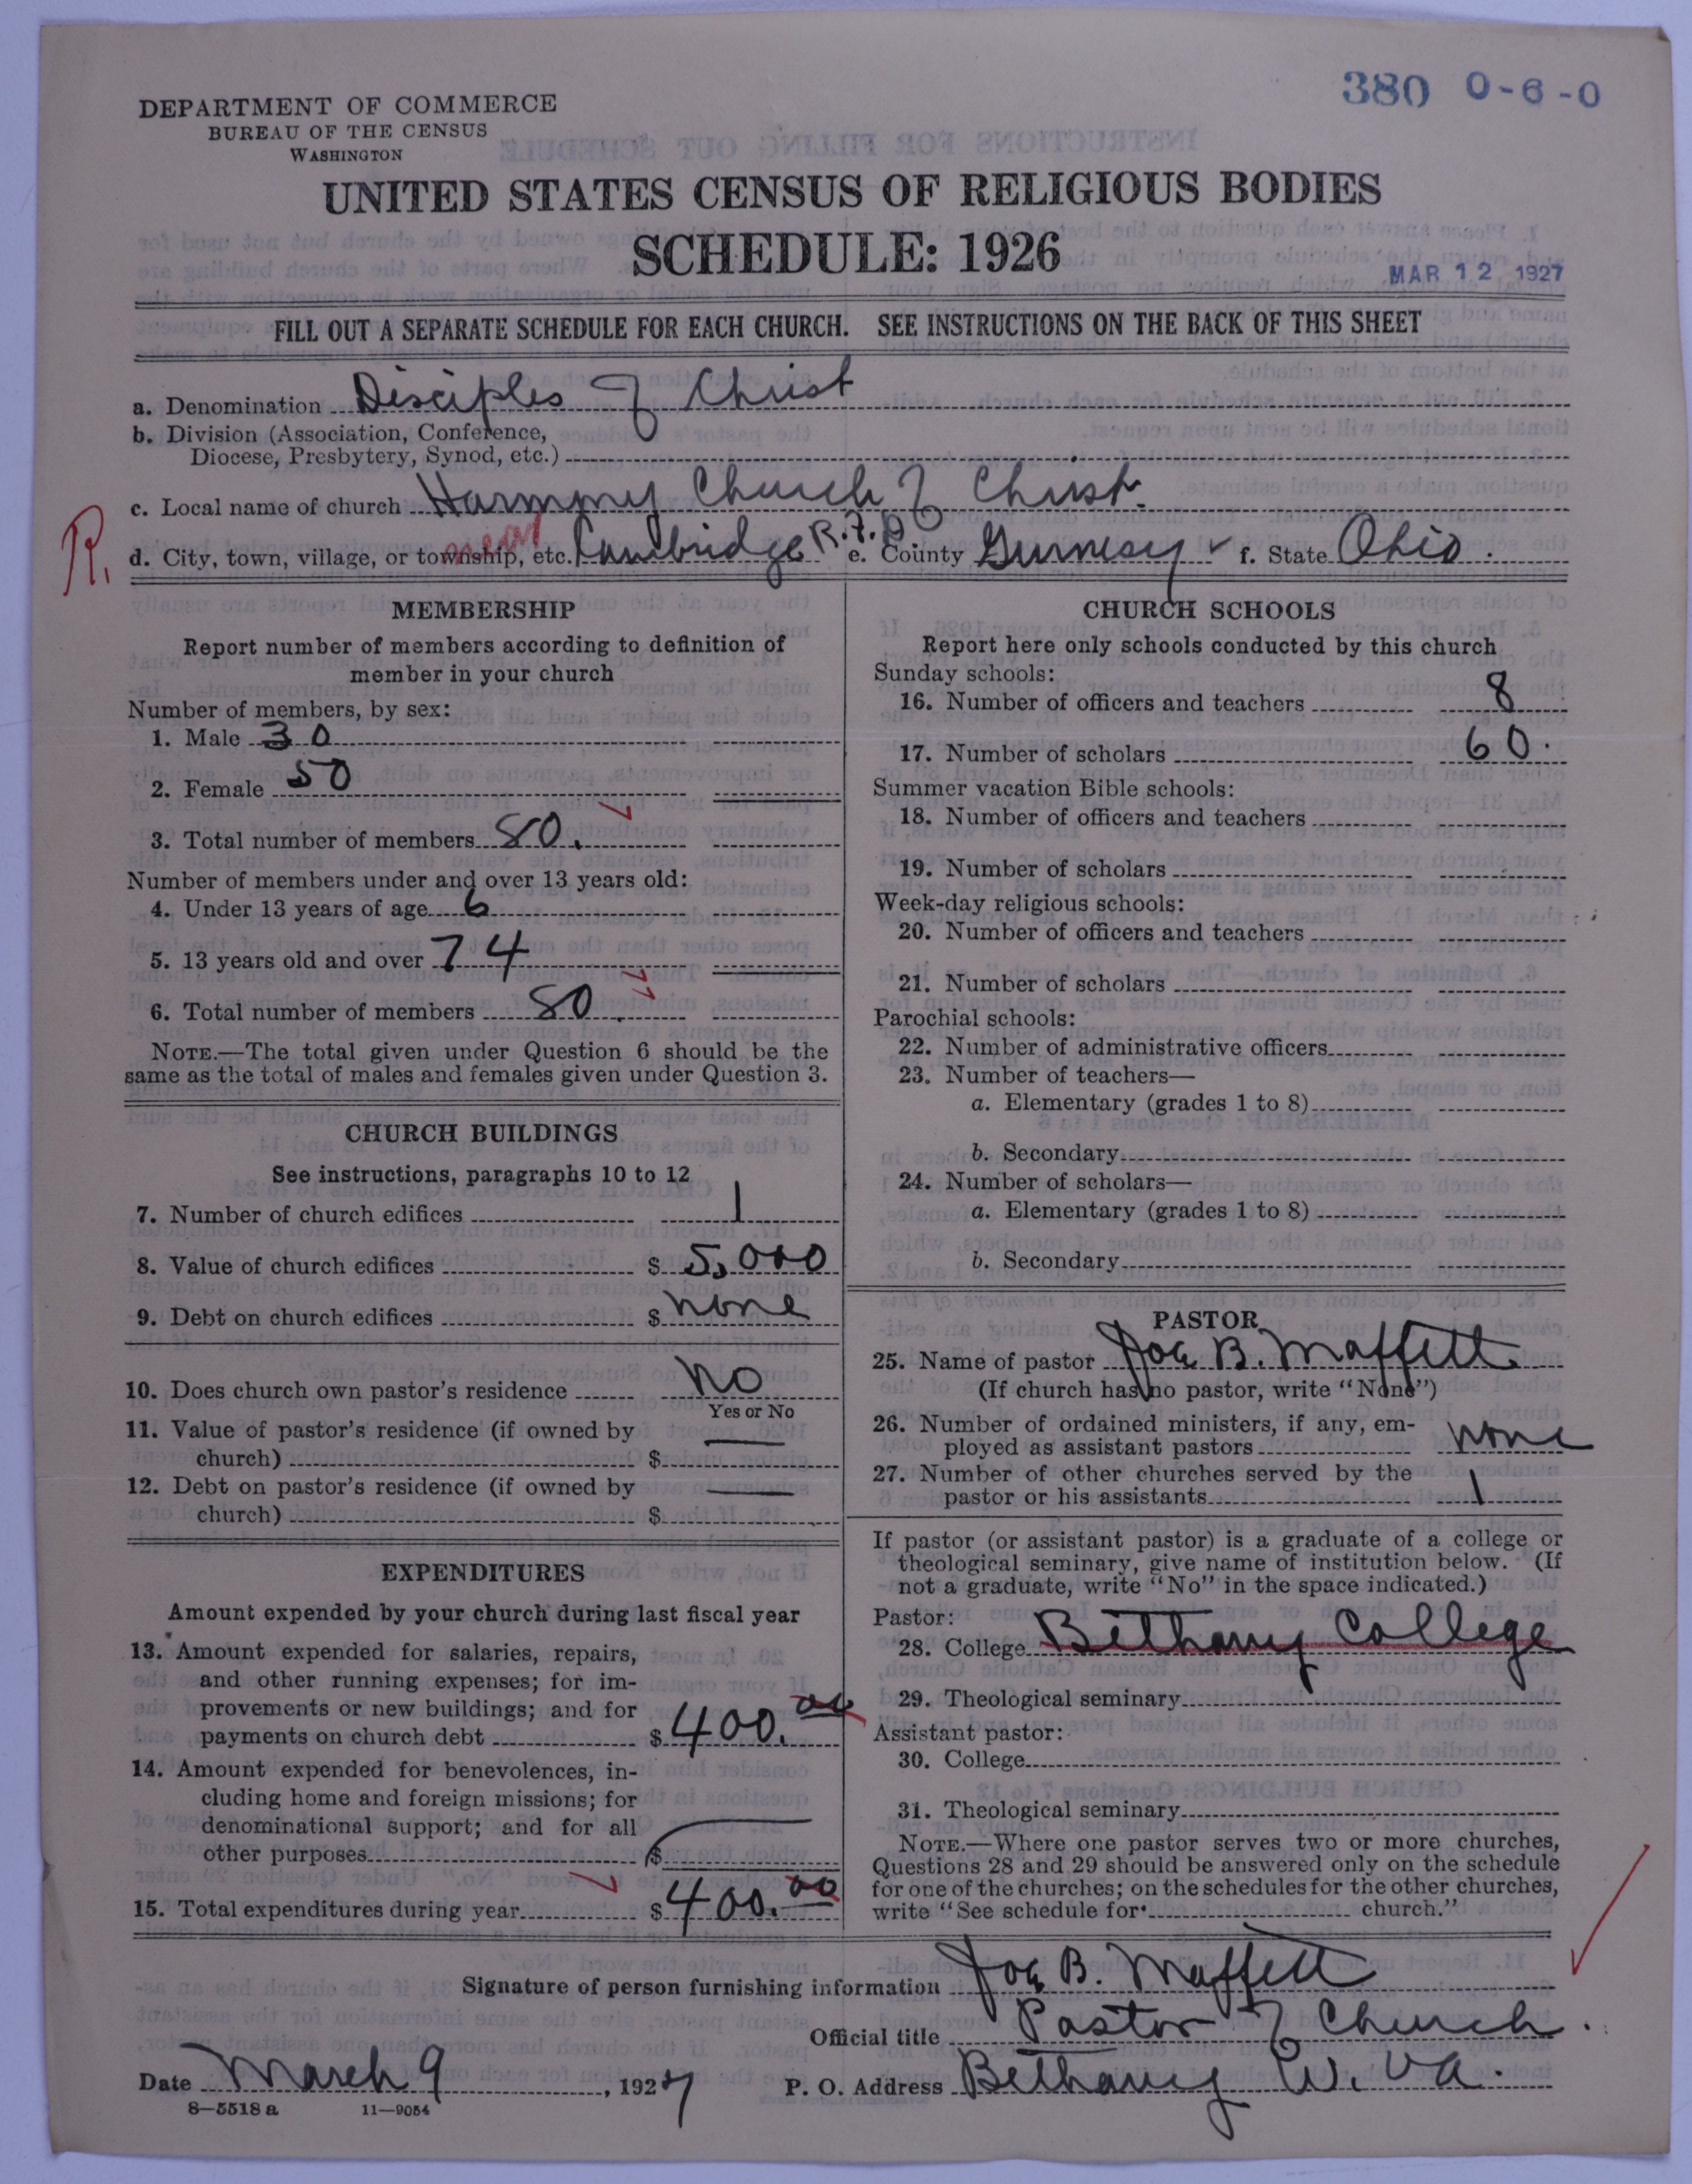 380 0-6-0
DEPARTMENT OF COMMERCE
BUREAU OF THE CENSUS
WASHINGTON
UNITED STATES CENSUS OF RELIGIOUS BODIES
SCHEDULE: 1926
MAR 12 1927
FILL OUT A SEPARATE SCHEDULE FOR EACH CHURCH. SEE INSTRUCTIONS ON THE BACK OF THIS SHEET
a. Denomination Disciples of Christ
b. Division (Association, Conference,
Diocese, Presbytery, Synod, etc.)
c. Local name of church Harmony Church of Christ.
R. d. City, town, village, or township, etc. near Cambridge R.F.D. e. County Gurnesey f. State Ohio.
MEMBERSHIP
Report number of members according to definition of
member in your church
Number of members, by sex:
1. Male 30
2. Female 50
3. Total number of members 80.
Number of members under and over 13 years old:
4. Under 13 years of age 6
5. 13 years old and over 74
6. Total number of members 80.
NOTE.—The total given under Question 6 should be the
same as the total of males and females given under Question 3.
CHURCH BUILDINGS
See instructions, paragraphs 10 to 12
7. Number of church edifices 1
8. Value of church edifices $ 5,000
9. Debt on church edifices $ none
10. Does church own pastor's residence No
Yes or No
11. Value of pastor's residence (if owned by
church) $ —
12. Debt on pastor's residence (if owned by
church) $ —
EXPENDITURES
Amount expended by your church during last fiscal year
13. Amount expended for salaries, repairs,
and other running expenses; for im-
provements or new buildings; and for
payments on church debt $ 400.00
14. Amount expended for benevolences, in-
cluding home and foreign missions; for
denominational support; and for all
other purposes $
15. Total expenditures during year $ 400.00
CHURCH SCHOOLS
Report here only schools conducted by this church
Sunday schools:
16. Number of officers and teachers 8
17. Number of scholars 60.
Summer vacation Bible schools:
18. Number of officers and teachers
19. Number of scholars
Week-day religious schools:
20. Number of officers and teachers
21. Number of scholars
Parochial schools:
22. Number of administrative officers
23. Number of teachers—
a. Elementary (grades 1 to 8)
b. Secondary
24. Number of scholars—
a. Elementary (grades 1 to 8)
b. Secondary
PASTOR
25. Name of pastor Joe B. Maffett
(If church has no pastor, write "None")
26. Number of ordained ministers, if any, em-
ployed as assistant pastors none
27. Number of other churches served by the
pastor or his assistants 1
If pastor (or assistant pastor) is a graduate of a college or
theological seminary, give name of institution below. (If
not a graduate, write "No" in the space indicated.)
Pastor:
28. College Bethany College
29. Theological seminary
Assistant pastor:
30. College
31. Theological seminary
NOTE.—Where one pastor serves two or more churches,
Questions 28 and 29 should be answered only on the schedule
for one of the churches; on the schedules for the other churches,
write "See schedule for church."
Signature of person furnishing information Joe B. Maffett
Official title Pastor of Church.
Date March 9, 1927 P. O. Address Bethany W. Va.
8—5518 a 11—9054